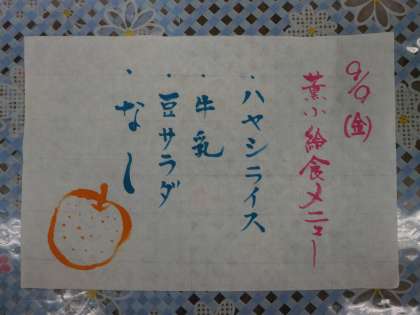 9/9(金)
薫小給食メニュー
・ハヤシライス
・牛乳
・豆サラダ
・なし